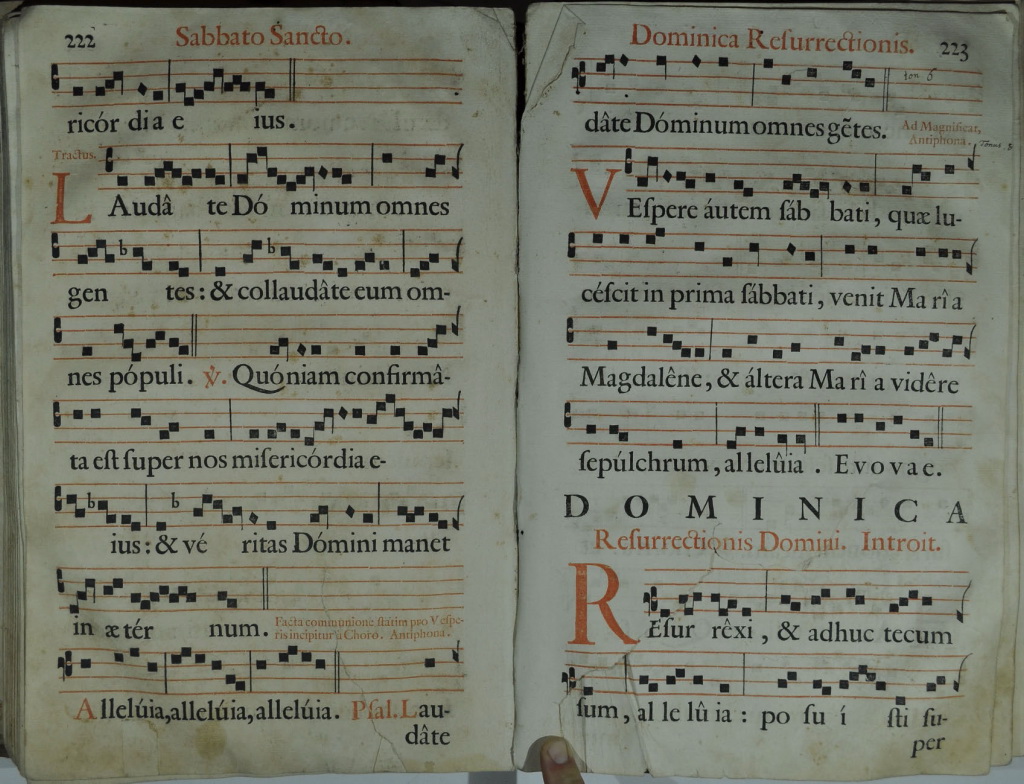 222 Sabbato Sancto.
ricór di a e ius.
Tractus.
LAudâ te Dó minum omnes
gen tes: & collaudâte eum om-
nes pópuli. ℣. Quóniam confirmâ-
ta eſt ſuper nos miſericórdia e-
ius: & vé ritas Dómini manet
in ætér num. Facta communione ſtatim pro Veſpe-
ris incipitur à Choro. Antiphona.
Allelúia, allelúia, allelúia. Pſal. Lau-
dâte
Dominica Reſurrectionis. 223
ton 6
dâte Dóminum omnes gẽtes. Ad Magnificat,
Antiphona.
VEſpere áutem ſáb bati, quæ lu-
céſcit in prima ſábbati, venit Ma rî a
Magdalêne, & áltera Ma rî a vidêre
ſepúlchrum, al lelûia. E v o v a e.
DOMINICA
Reſurrectionis Domini. Introit.
REſur rêxi, & adhuc tecum
ſum, al le lû ia: po ſu í ſti ſu-
per